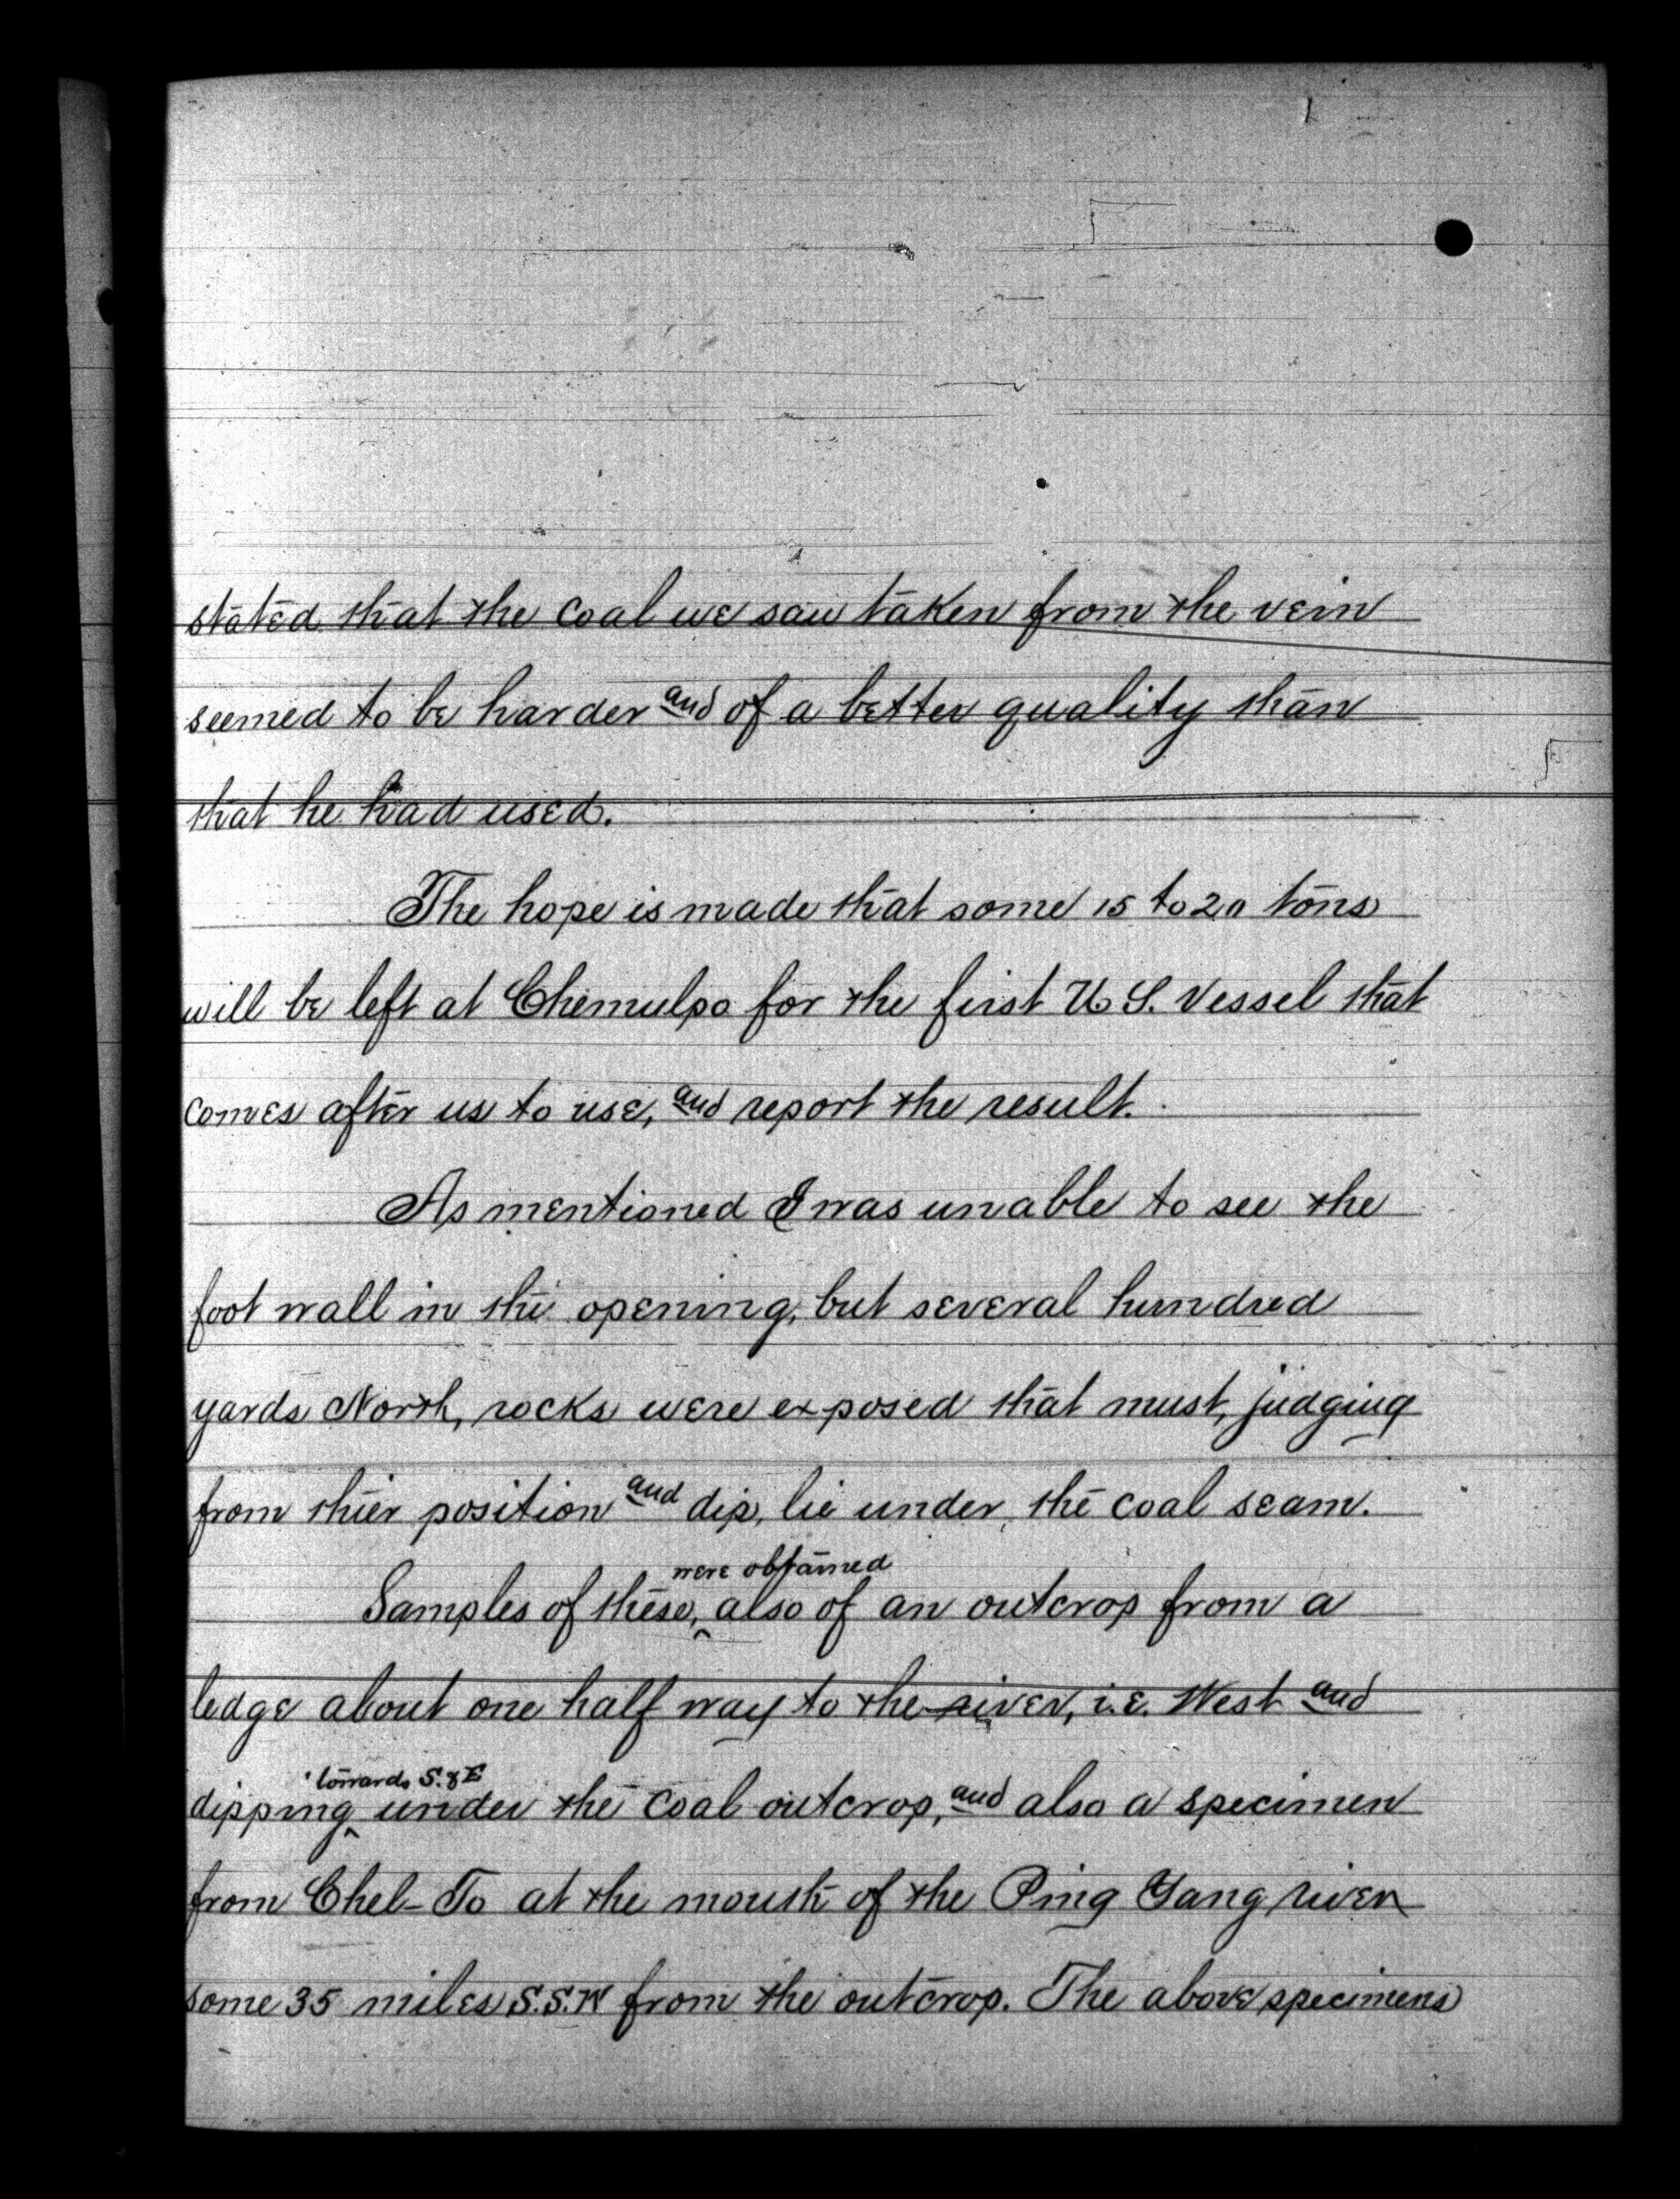 stated that the coal we saw taken from the vein
seemed to be harder and of a better quality than
that he had used.
The hope is made that some 15 to 20 tons
will be left at Chemulpo for the first U.S. Vessel that
comes after us to use, and report the result.
As mentioned I was unable to see the
foot wall in the opening, but several hundred
yards North, rocks were exposed that must, judging
from thier position and dip, lie under the coal seam.
were obtained
Samples of these, ‸ also of an outcrop from a
ledge about one half way to the river, i.e. West and
towards S. & E
dipping ‸ under the coal outcrop, and also a specimen
from Chel-To at the mouth of the Ping Yang river
some 35 miles S.S.W from the outcrop. The above specimens